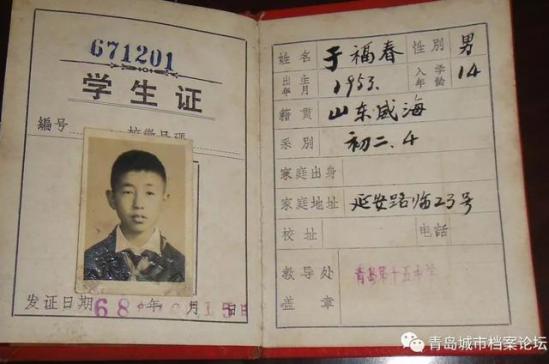 671201
学生证
編号 校徽号码
发证日期68年6月15日
姓名 于福春 性别 男
出生年月 1953. 入学年龄 14
籍贯 山东威海
系别 初二.4
家庭出身
家庭地址 延安路临23号
校址 电话
教导处盖章 青岛第十五中学
青岛城市档案论坛